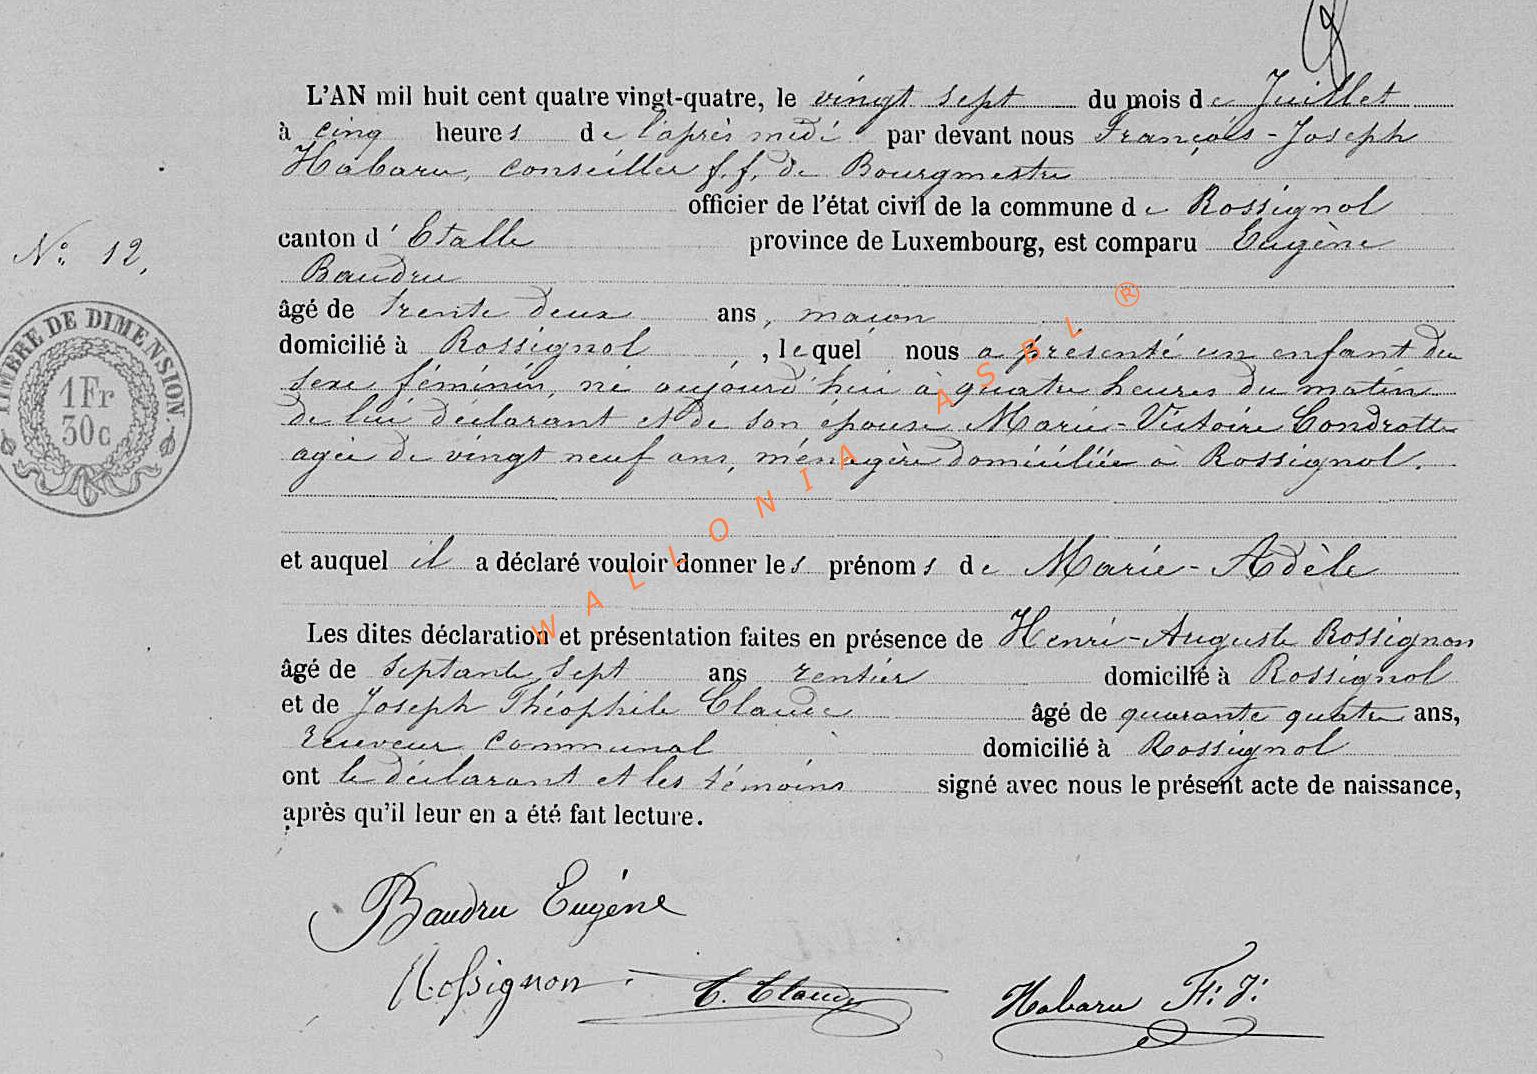 L'AN mil huit cent quatre vingt-quatre, le vingt sept du mois de Juillet
à cinq heures de l'après midi par devant nous François-Joseph
Habaru, conseiller f.f. de Bourgmestre
officier de l'état civil de la commune de Rossignol
canton d' Etalle province de Luxembourg, est comparu Eugène
N° 12.
Baudru
âgé de trente deux ans, maçon
domicilié à Rossignol, lequel nous a présenté un enfant du
sexe féminin, né aujourd'hui à quatre heures du matin
de lui déclarant et de son épouse Marie-Victoire Condrotte
agée de vingt neuf ans, ménagère domiciliée à Rossignol.
et auquel il a déclaré vouloir donner les prénoms de Marie-Adèle
Les dites déclaration et présentation faites en présence de Henri-Auguste Rossignon
âgé de septante sept ans rentier domicilié à Rossignol
et de Joseph Théophile Claude âgé de quarante quatre ans,
receveur communal domicilié à Rossignol
ont le déclarant et les témoins signé avec nous le présent acte de naissance,
après qu'il leur en a été fait lecture.
Baudru Eugène
Rossignon. Claude Habaru F: J:
TIMBRE DE DIMENSION.
1 Fr
30 c
WALLONIA ASBL ®